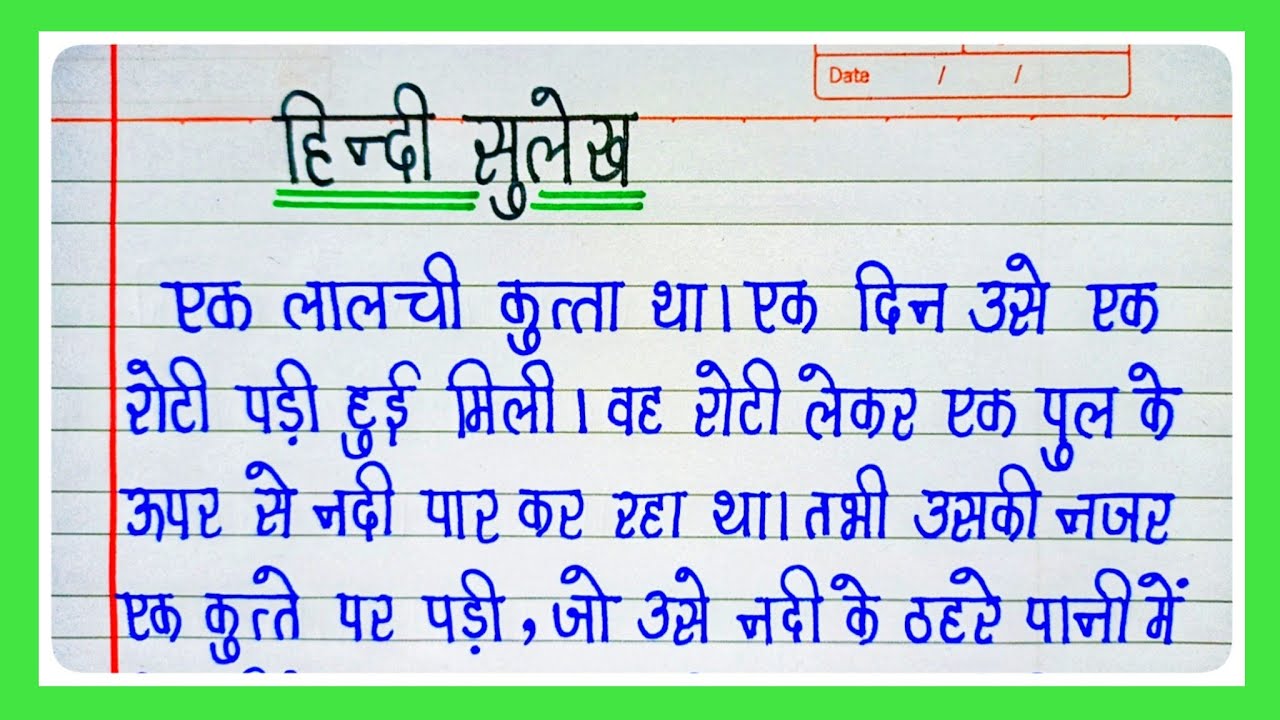 Date / /
हिन्दी सुलेख
एक लालची कुत्ता था। एक दिन उसे एक
रोटी पड़ी हुई मिली। वह रोटी लेकर एक पुल के
ऊपर से नदी पार कर रहा था। तभी उसकी नजर
एक कुत्ते पर पड़ी, जो उसे नदी के ठहरे पानी में